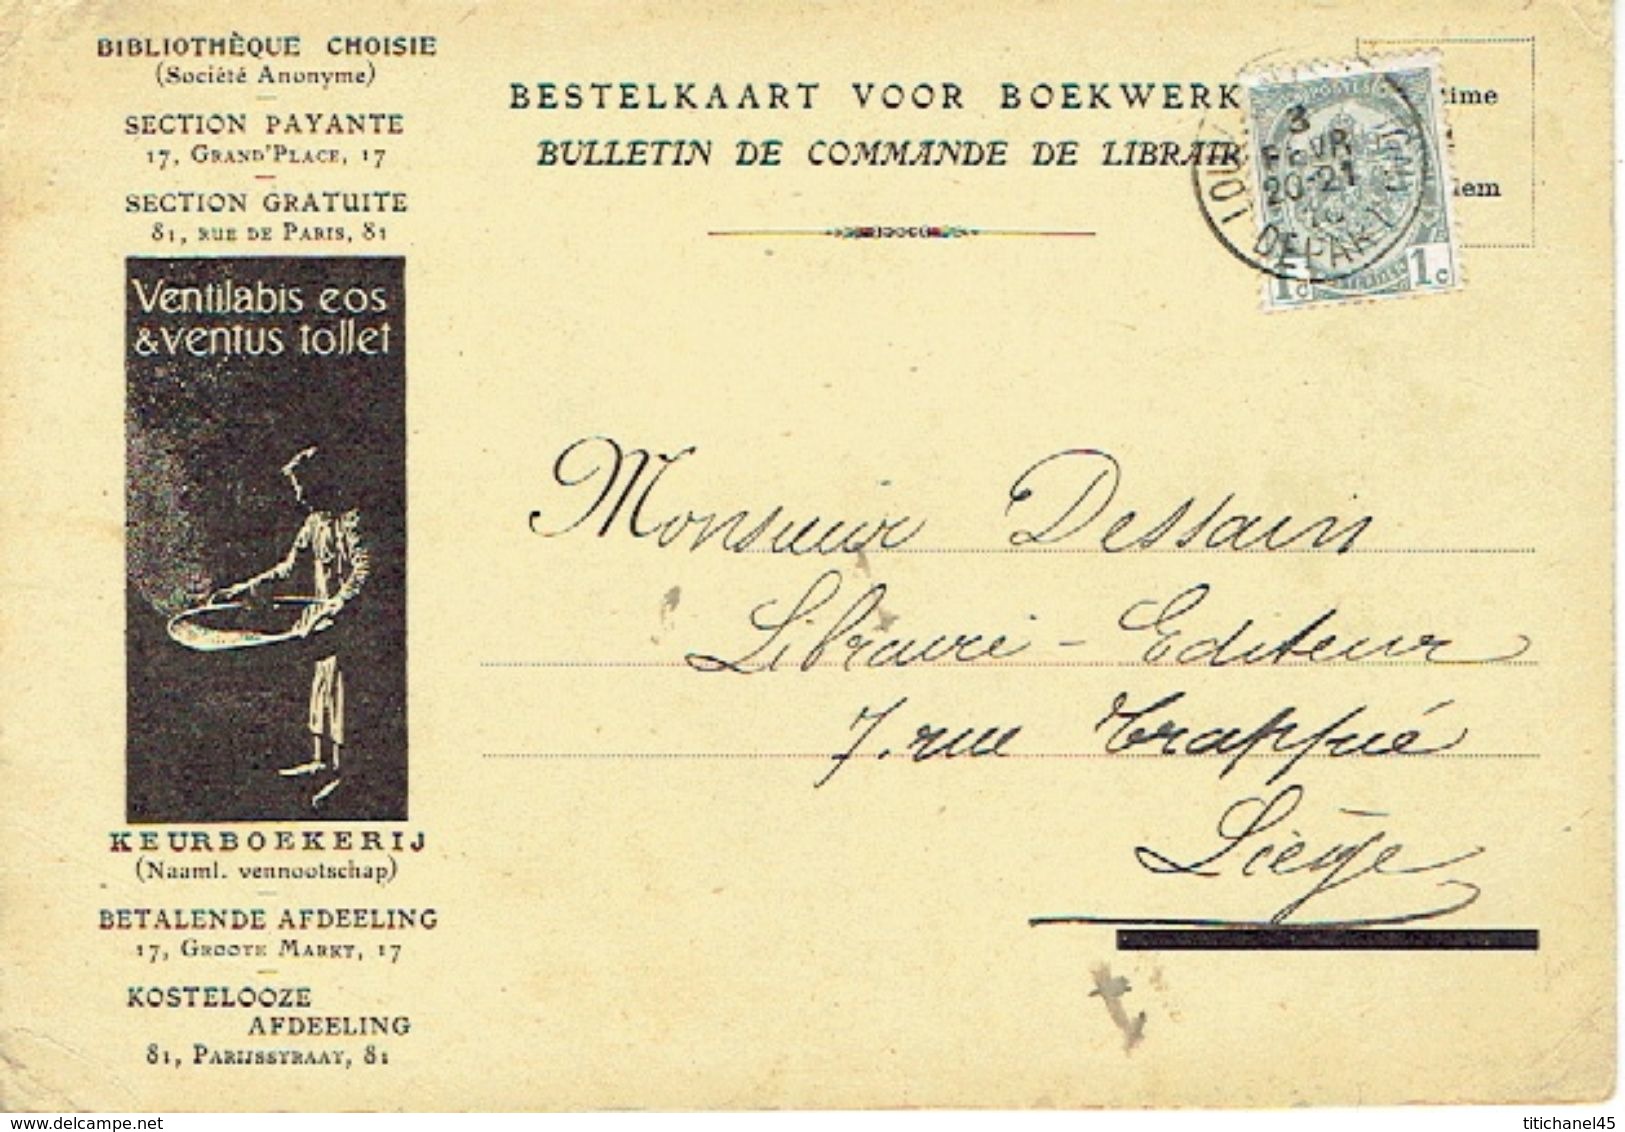 BIBLIOTHÈQUE CHOISIE
(Société Anonyme)
SECTION PAYANTE
17, GRAND'PLACE, 17
SECTION GRATUITE
81, RUE DE PARIS, 81
Ventilabis eos
& ventus tollet
KEURBOEKERIJ
(Naaml. vennootschap)
BETALENDE AFDEELING
17, GROOTE MARKT, 17
KOSTELOOZE
AFDEELING
81, PARIJSSTRAAT, 81
BESTELKAART VOOR BOEKWERK
BULLETIN DE COMMANDE DE LIBRAIR
POSTES
3
FEVR
20-21
DEPART
1c 1c
Monsieur Dessain
Libraire - Editeur
7. rue Trappé
Liège
titichanel45